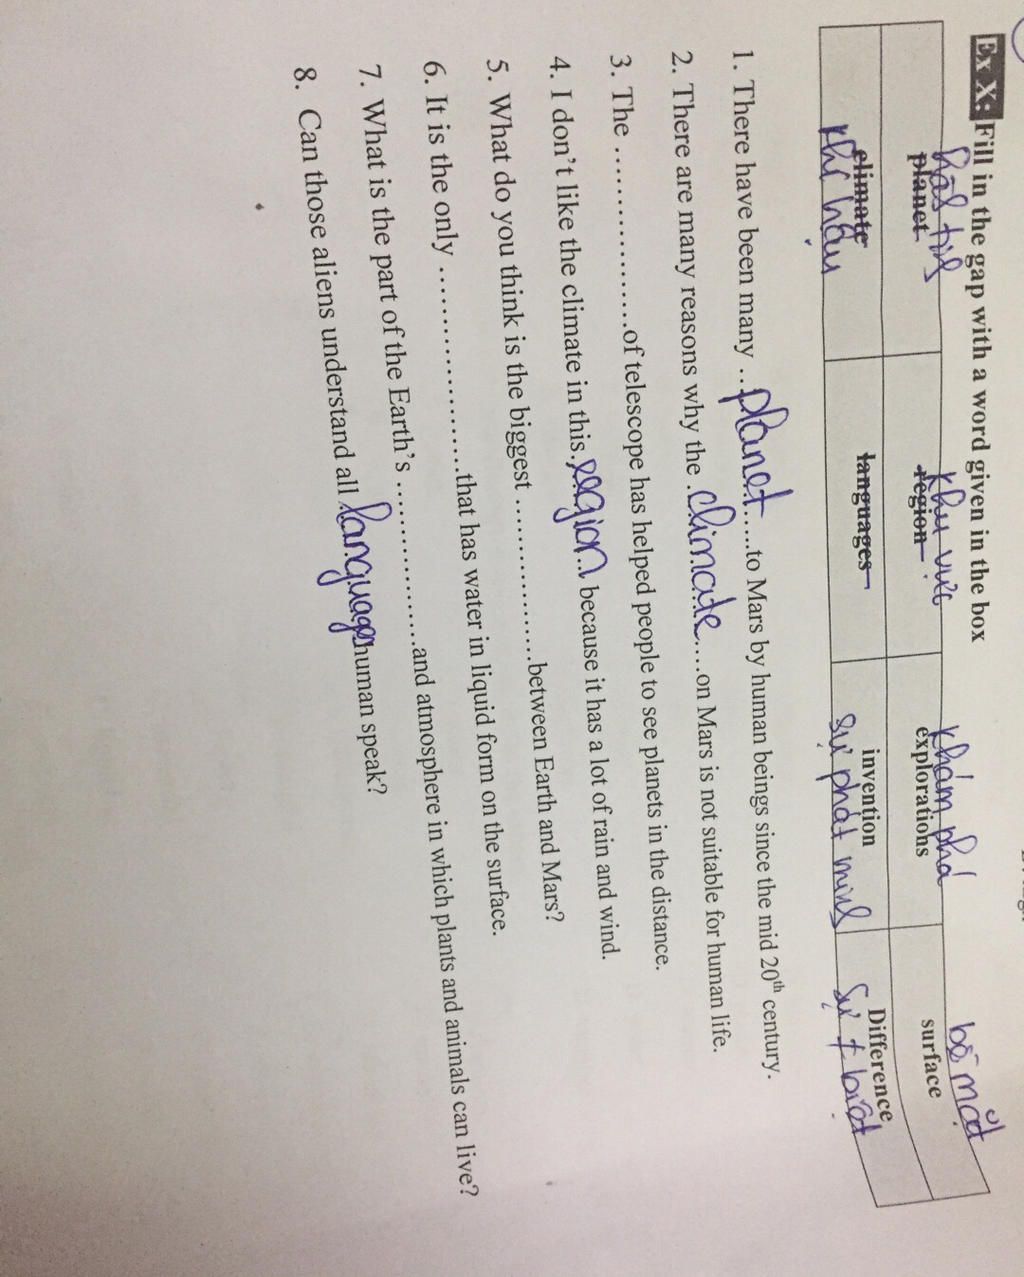 Ex X. Fill in the gap with a word given in the box
hành tinh khu vực khám phá bề mặt
planet region explorations surface
climate languages invention Difference
khí hậu sự phát minh sự # biệt
1. There have been many ...planet......to Mars by human beings since the mid 20th century.
2. There are many reasons why the .climate.....on Mars is not suitable for human life.
3. The ..................of telescope has helped people to see planets in the distance.
4. I don't like the climate in this.region because it has a lot of rain and wind.
5. What do you think is the biggest ..................between Earth and Mars?
6. It is the only ......................that has water in liquid form on the surface.
7. What is the part of the Earth's ..................and atmosphere in which plants and animals can live?
8. Can those aliens understand all languages human speak?